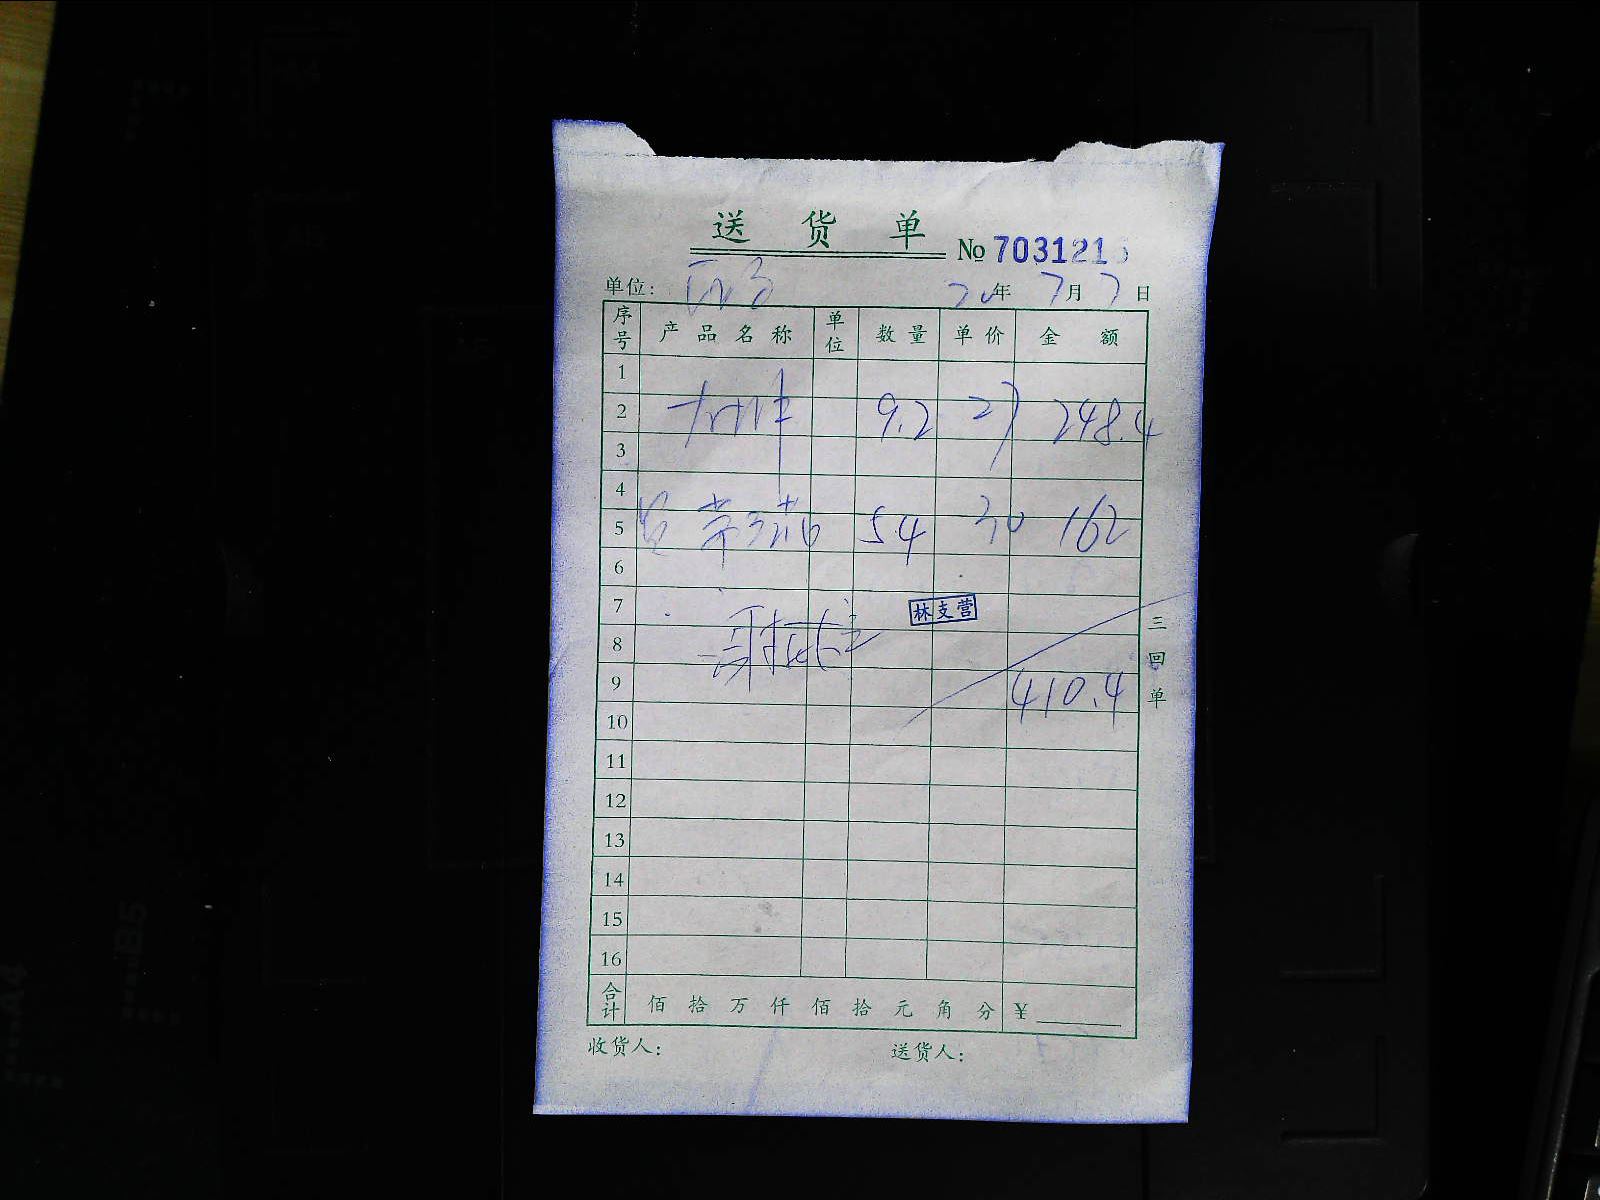 送 货 单
№ 703121
单位： 20年 7月 7日
序号 产品名称 单位 数量 单价 金额
1
2 9.2 27 248.4
3
4
5 5.4 30 162
6
7 林支营
8
9 410.4
10
11
12
13
14
15
16
合计 佰 拾 万 仟 佰 拾 元 角 分 ¥
收货人： 送货人：
三回单
B5
A4